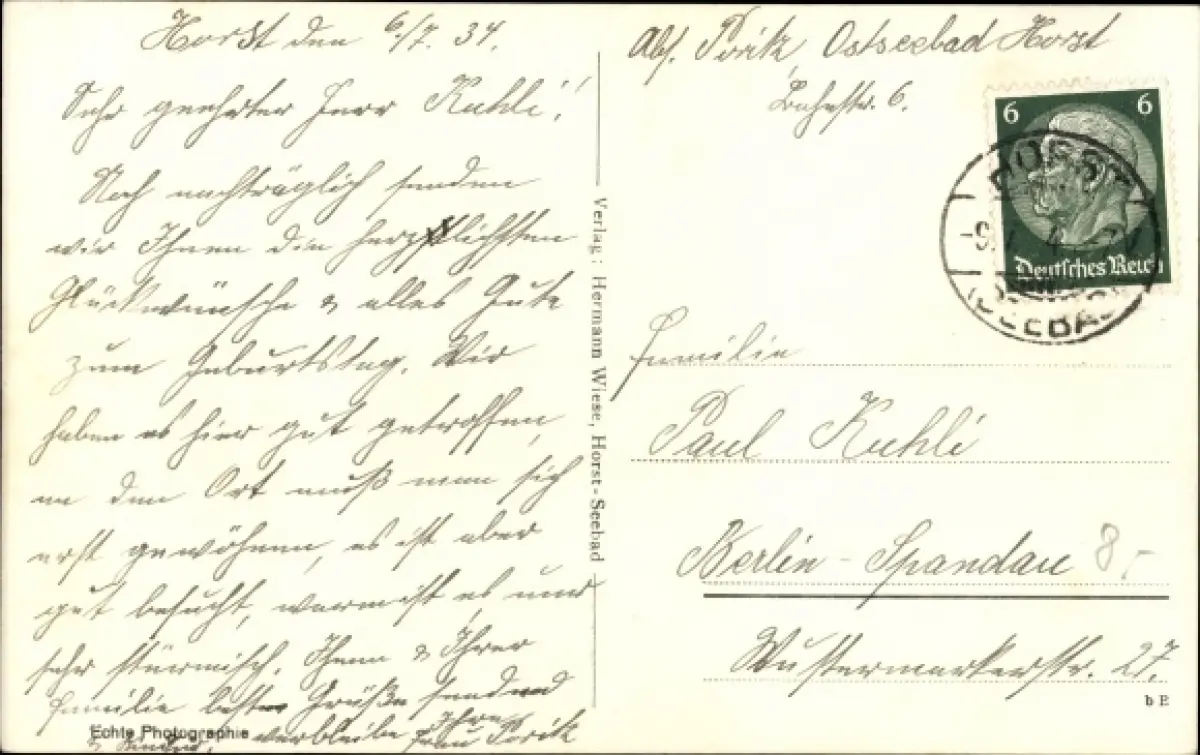 Horst den 6/7. 34.
Sehr geehrter Herr Kuhli!
Noch nachträglich senden
wir Ihnen die herzlichsten
Glückwünsche & alles Gute
zum Geburtstag. Wir
haben es hier gut getroffen,
an den Ort muß man sich
erst gewöhnen, es ist aber
gut besucht, warm ist es nur
sehr stürmisch. Ihnen & Ihrer
Familie beste Grüße sendend
verbleibe Ihre
Frau Poritz
Echte Photographie
Verlag: Hermann Wiese, Horst-Seebad
Abs. Poritz, Ostseebad Horst
6.
6 6
Deutsches Reich
HORST
SEEBAD
Familie
Paul Kuhli
Berlin-Spandau
8.-
Wustermarkerstr. 27.
b E